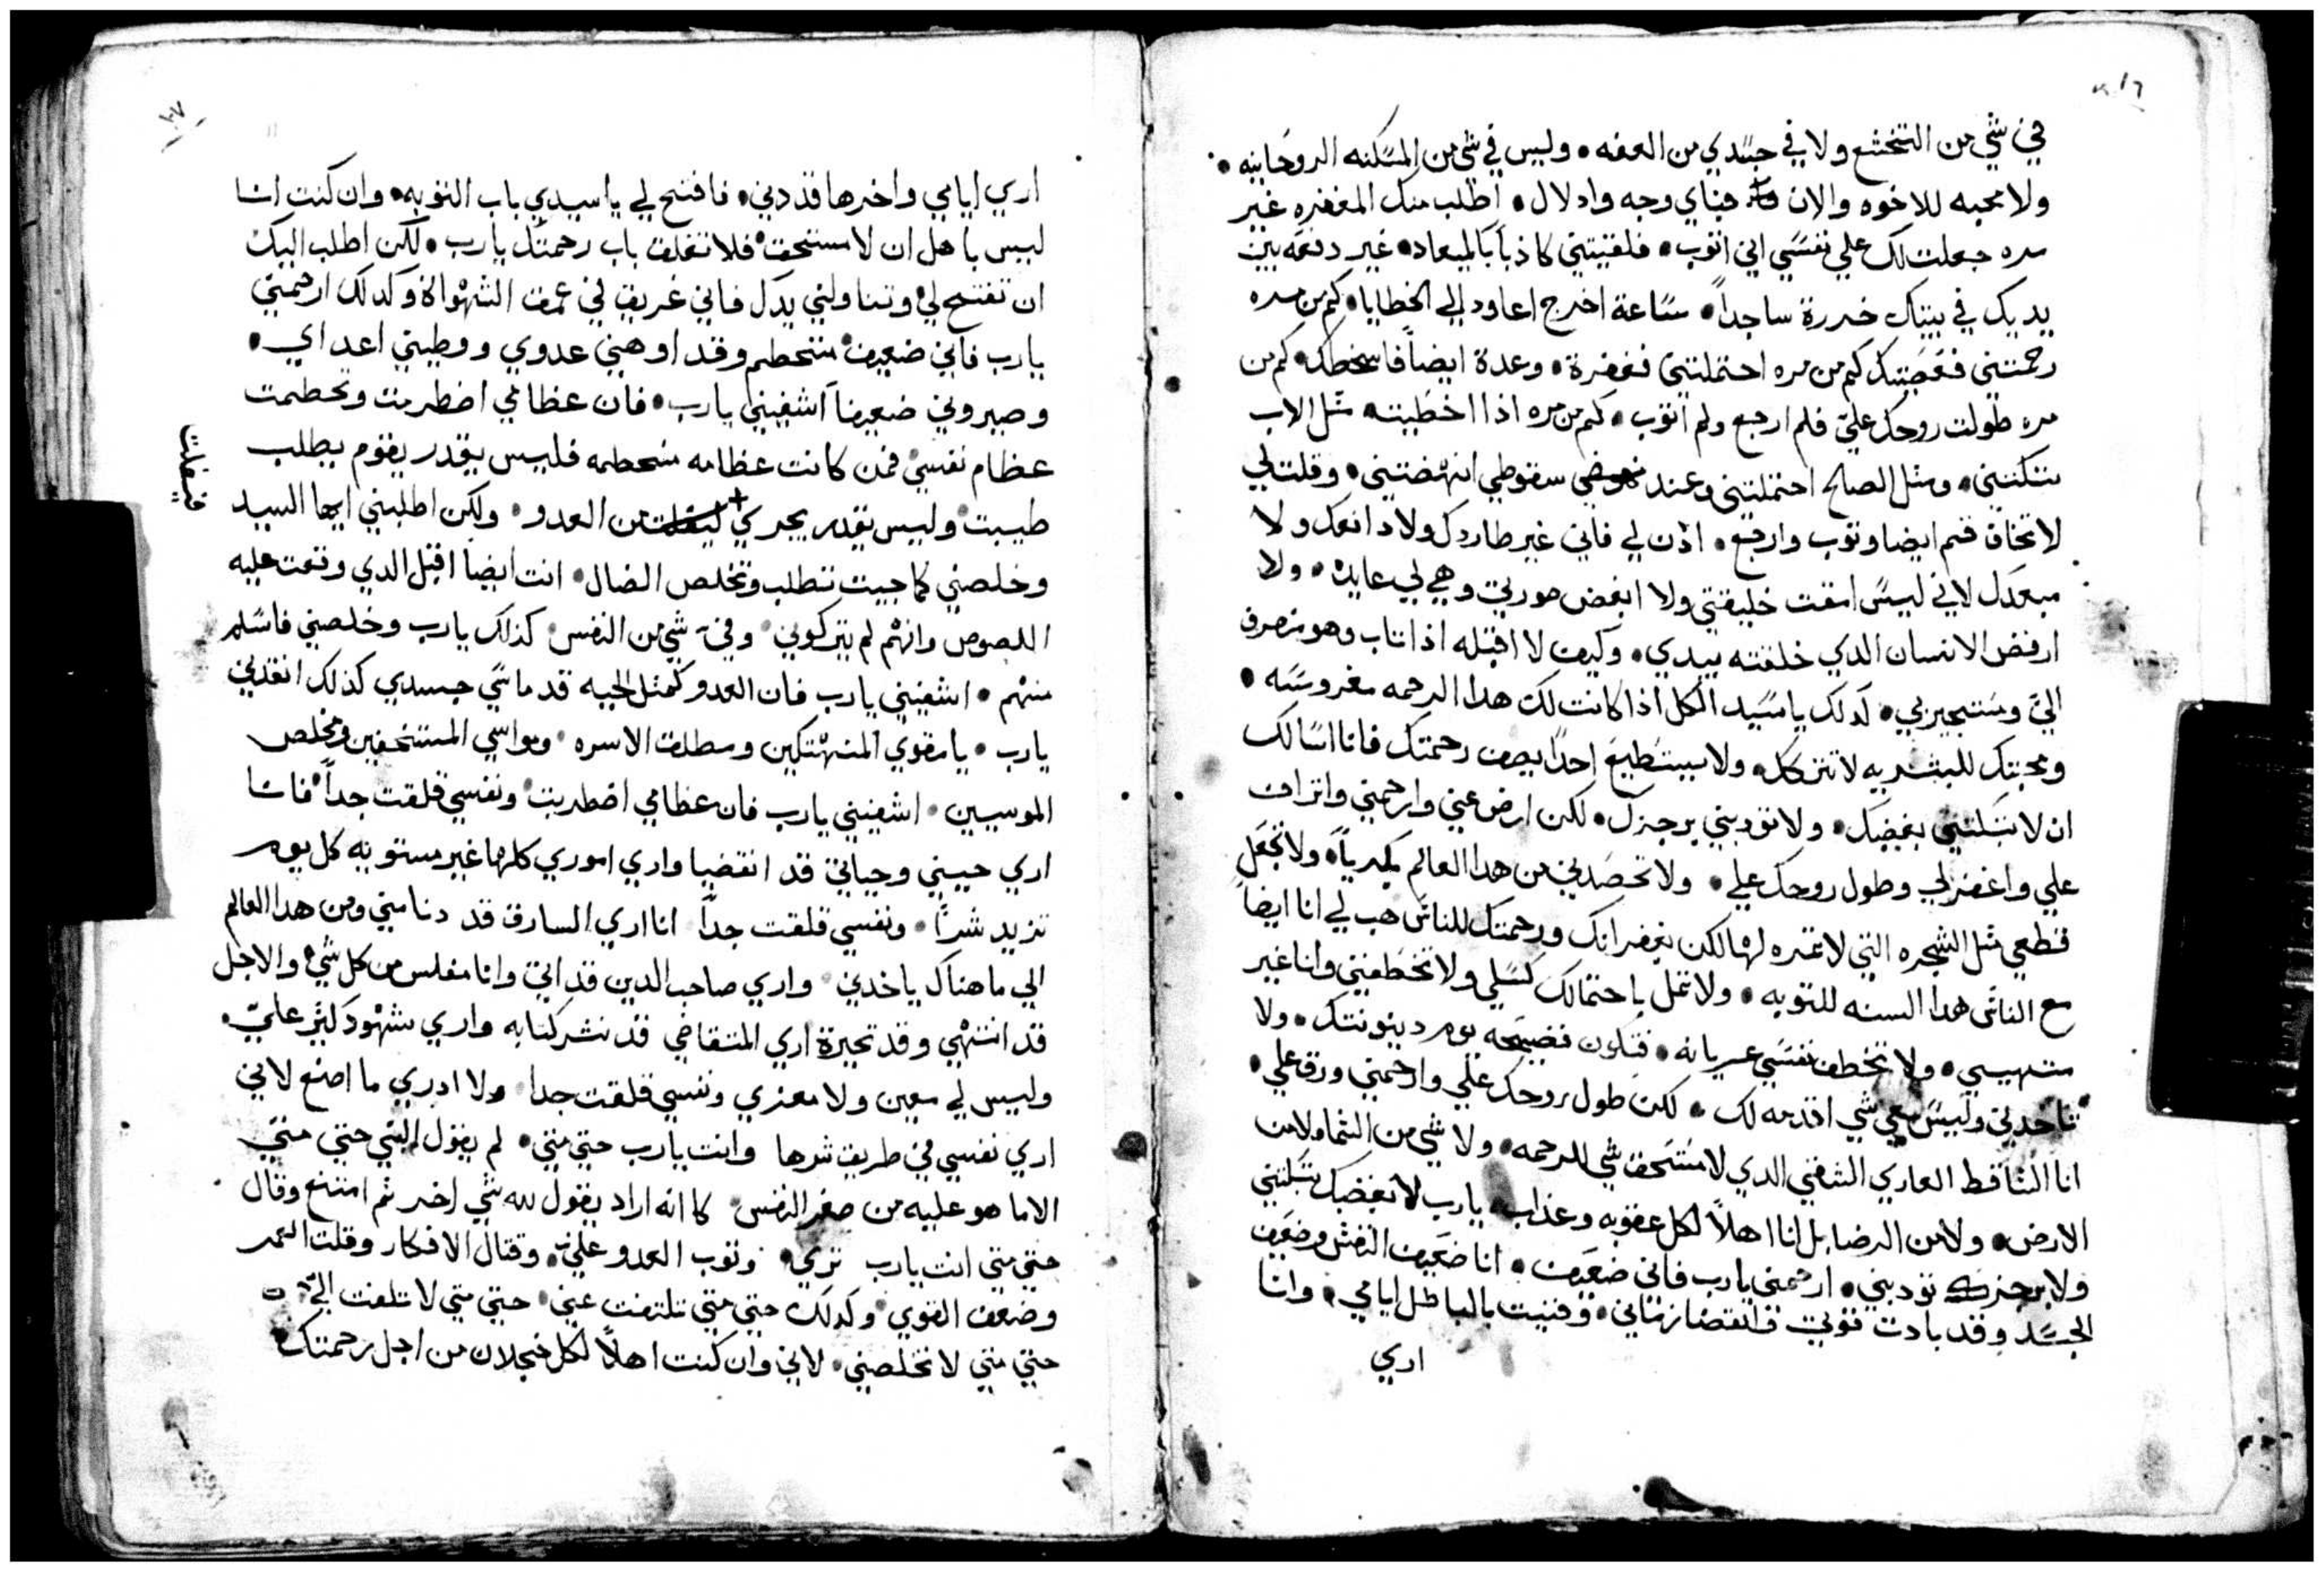 في شي من التخشع ولا في جسدي من العفه • وليس في شي من المسكنه الروحانيه •
ولا محبه للاخوه والان فباي وجه وادلال • اطلب منك المغفره غير
مره جعلت لك علي نفسي اني اتوب • فلقيتني كاذباً بالميعاد • غير دفعه بين
يديك في بيتك خررة ساجداً • ساعة اخرج اعاود الي الخطايا • كم من مره
رحمتني فغضبتك كم من مره احتملتني فغفرة • وعدة ايضاً فاسخطك • كم من
مره طولت روحك عليّ فلم ارجع ولم اتوب • كم من مره اذا اخطيته مثل الاب
تبكتني • ومثل الصالح احتملتني وعند سقوطي انهضتني • وقلت لي
لا تخاف قم ايضا وتوب وارجع • ادن لي فاني غير طاردك ولا دافعك ولا
مبعدك لاني ليس امقت خليقتي ولا ابغض صورتي وهي لي عايده • ولا
ارفض الانسان الدي خلقته بيدي • وكيف لا اقبله اذا تاب وهو منصرف
اليّ ومستجير بي • كدلك يا سيد الكل اذا كانت لك هدا الرحمه مغروسه •
ومحبتك للبشريه لا تترك • ولا يستطيع احداً يصف رحمتك فانا اسالك
ان لا تبكتني بغضبك • ولا تودبني برجزك • لكن ارض عني وارحمني واتراف
علي واغفر لي وطول روحك علي • ولا تحصدني من هدا العالم ولا تجعل
قطعي مثل الشجره التي لا ثمره لها لكن بغفرانك ورحمتك للناس هب لي انا ايضاً
مع الناس هدا السنه للتوبه • ولا تمل باحتمالك كسلي ولا تخطفني وانا غير
متهيي • ولا تخطف نفسي عريانه • فتكون فضيحه يوم دينونتك • ولا
تاخدني وليس معي شي اقدمه لك • لكن طول روحك علي وارحمني ورق علي •
انا الساقط العاري الشقي الدي لا مستحق شي للرحمه • ولا شي من السما ولا من
الارض • ولا من الرضا بل انا اهلاً لكل عقوبه وعذاب • يا رب لا بغضبك تبكتني
ولا برجزك تودبني • ارحمني يا رب فاني ضعيف • انا ضعيف النفس وضعيف
الجسد وقد بادت قوتي وانقضا زماني • وفنيت بالباطل ايامي • وانا
اري
اري ايامي واخرها قد دني • فافتح لي يا سيدي باب التوبه • وان كنت انا
ليس باهل ان لا مستحق فلا تغلق باب رحمتك يا رب • لكن اطلب اليك
ان تفتح لي وتناولني يدك فاني غريق في عمق الشهواة وكدلك ارحمني
يا رب فاني ضعيف متحطم وقد اوهني عدوي ووطيني اعداي •
وصيروني ضعيفاً اشفيني يا رب • فان عظامي اضطربت وتحطمت
عظام نفسي فمن كانت عظامه متحطمه فليس يقدر يقوم يطلب
طبيب وليس يقدر يجري + من العدو • ولكن اطلبني ايها السيد
فيفلت
وخلصني كما جيت تطلب وتخلص الضال • انت ايضاً اقبل الدي وقعت عليه
اللصوص وانهم لم يتركوني وفيّ شي من النفس كذلك يا رب وخلصني فاسلم
منهم • اشفيني يا رب فان العدو كمثل الحيه قد ماشي جسدي كذلك انقذني
يا رب • يا مقوي المنهتكين ومطلق الاسره ومواسي المستخفين ومخلص
الموسيين • اشفيني يا رب فان عظامي اضطربت ونفسي قلقت جداً فانا
اري حيني وحياتي قد انقضيا واري اموري كلها غير مستويه كل يوم
تزيد شراً • ونفسي قلقت جداً انا اري السارق قد دنا مني ومن هدا العالم
الي ما هناك ياخدني • واري صاحب الدين قد اتي وانا مفلس من كل شي والاجل
قد انتهي وقد تحيرة اري المتقاضي قد نشر كتابه واري شهود كثير عليّ •
وليس لي معين ولا معزي ونفسي قلقت جدا ولا ادري ما اصنع لاني
اري نفسي في طريق شرها وانت يا رب حتي متي • لم يقول النبي حتي متي
الا ما هو عليه من صغر النفس كانه اراد يقول لله شي اخر ثم امتنع وقال
حتي متي انت يا رب تري • وتوب العدو عليّ • وقتال الافكار وقلت العمر
وضعف القوي وكدلك حتي متي تلتفت عني • حتي متي لا تلفت اليّ
حتي متي لا تخلصني • لاني وان كنت اهلاً لكل خجلان من اجل رحمتك